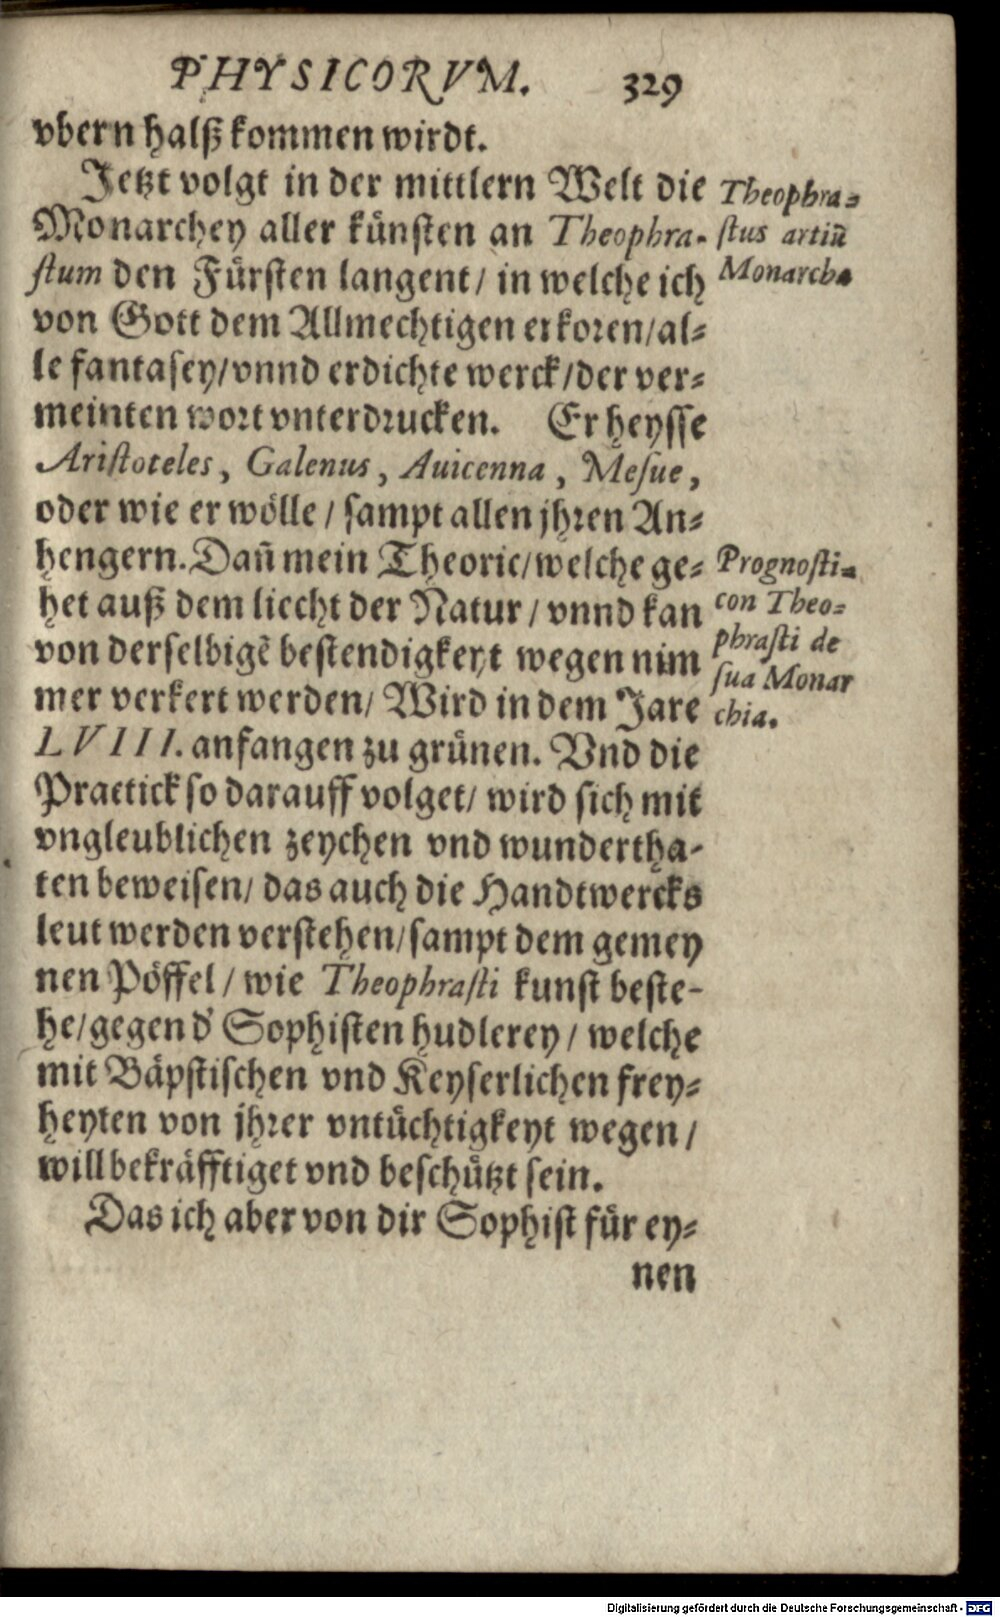 PHYSICORVM. 329
vbern halß kommen wirdt.
Jetzt volgt in der mittlern Welt die
Monarchey aller künsten an Theophra-
stum den Fürsten langent/ in welche ich
von Gott dem Allmechtigen erkoren/al-
le fantasey/vnnd erdichte werck/der ver-
meinten wort vnterdrucken. Er heysse
Aristoteles, Galenus, Auicenna, Mesue,
oder wie er wölle/ sampt allen jhren An-
hengern. Dañ mein Theoric/welche ge-
het auß dem liecht der Natur/ vnnd kan
von derselbigẽ bestendigkeyt wegen nim
mer verkert werden/ Wird in dem Jare
LVIII. anfangen zu grünen. Vnd die
Practick so darauff volget/ wird sich mit
vngleublichen zeychen vnd wundertha-
ten beweisen/ das auch die Handtwercks
leut werden verstehen/sampt dem gemey
nen Pöffel/ wie Theophrasti kunst beste-
he/gegen d' Sophisten hudlerey/ welche
mit Bäpstischen vnd Keyserlichen frey-
heyten von jhrer vntüchtigkeyt wegen/
will bekräfftiget vnd beschützt sein.
Das ich aber von dir Sophist für ey-
nen
Theophra-
stus artiũ
Monarcha
Prognosti-
con Theo-
phrasti de
sua Monar
chia.
Digitalisierung gefördert durch die Deutsche Forschungsgemeinschaft - DFG